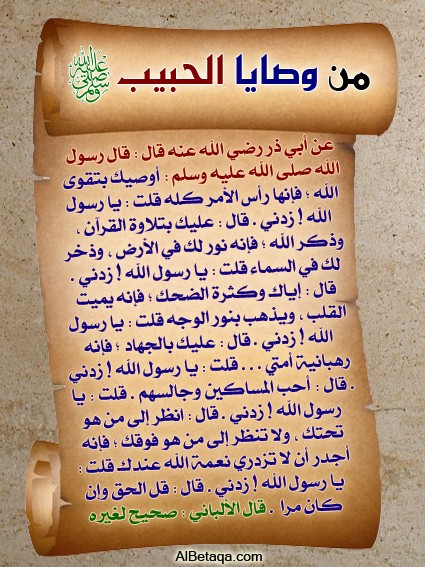 من وصايا الحبيب ﷺ
عن أبي ذر رضي الله عنه قال : قال رسول
الله صلى الله عليه وسلم : أوصيك بتقوى
الله ؛ فإنها رأس الأمر كله قلت : يا رسول
الله ! زدني . قال : عليك بتلاوة القرآن ،
وذكر الله ؛ فإنه نور لك في الأرض ، وذخر
لك في السماء قلت : يا رسول الله ! زدني .
قال : إياك وكثرة الضحك ؛ فإنه يميت
القلب ، ويذهب بنور الوجه قلت : يا رسول
الله ! زدني . قال : عليك بالجهاد ؛ فإنه
رهبانية أمتي . . . قلت : يا رسول الله ! زدني
. قال : أحب المساكين وجالسهم . قلت : يا
رسول الله ! زدني . قال : انظر إلى من هو
تحتك ، ولا تنظر إلى من هو فوقك ؛ فإنه
أجدر أن لا تزدري نعمة الله عندك قلت :
يا رسول الله ! زدني . قال : قل الحق وإن
كان مرا . قال الألباني : صحيح لغيره
AlBetaqa.com